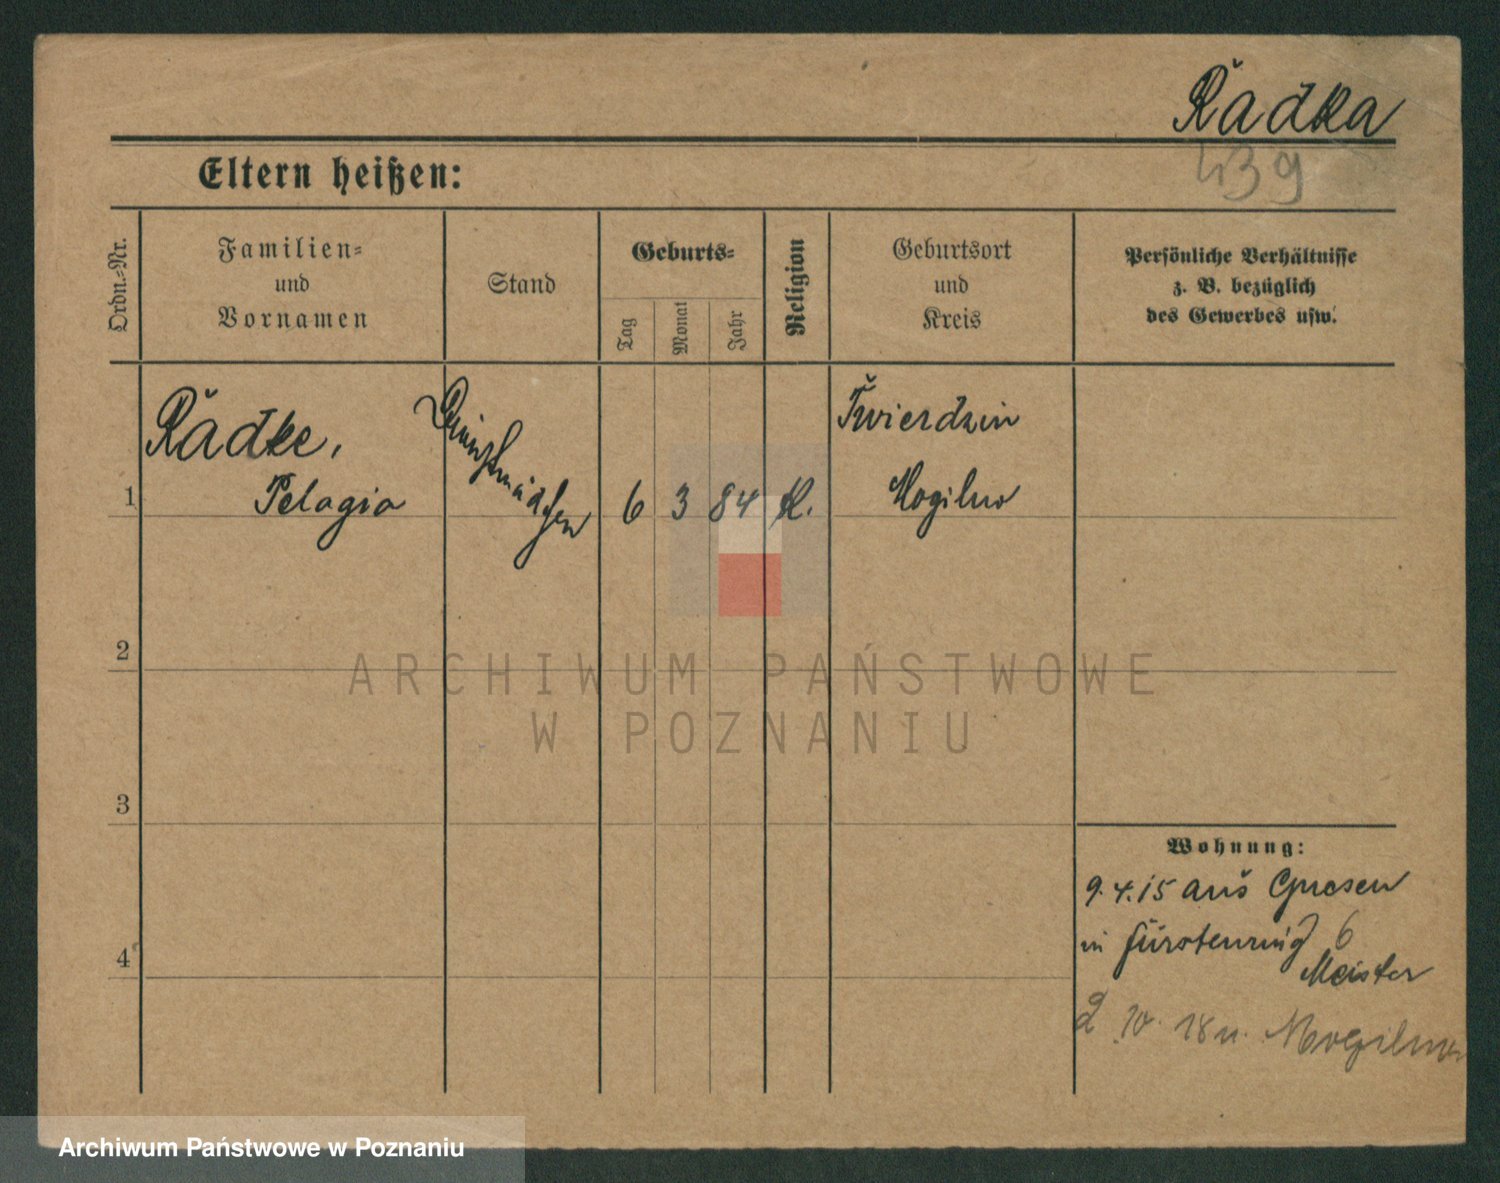 Radka
439
Eltern heißen:
Ordn.-Nr.
Familien-
und
Vornamen
Stand
Geburts-
Tag
Monat
Jahr
Religion
Geburtsort
und
Kreis
Persönliche Verhältnisse
z. B. bezüglich
des Gewerbes usw.
1
Radke,
Pelagia
Dienstmädchen
6 3 84 K.
Twierdzin
Mogilno
2
ARCHIWUM PAŃSTWOWE
W POZNANIU
3
Wohnung:
9.4.15 aus Gnesen
in Fürstenring 6
Meister
4
2. 10. 18 n. Mogilno
Archiwum Państwowe w Poznaniu